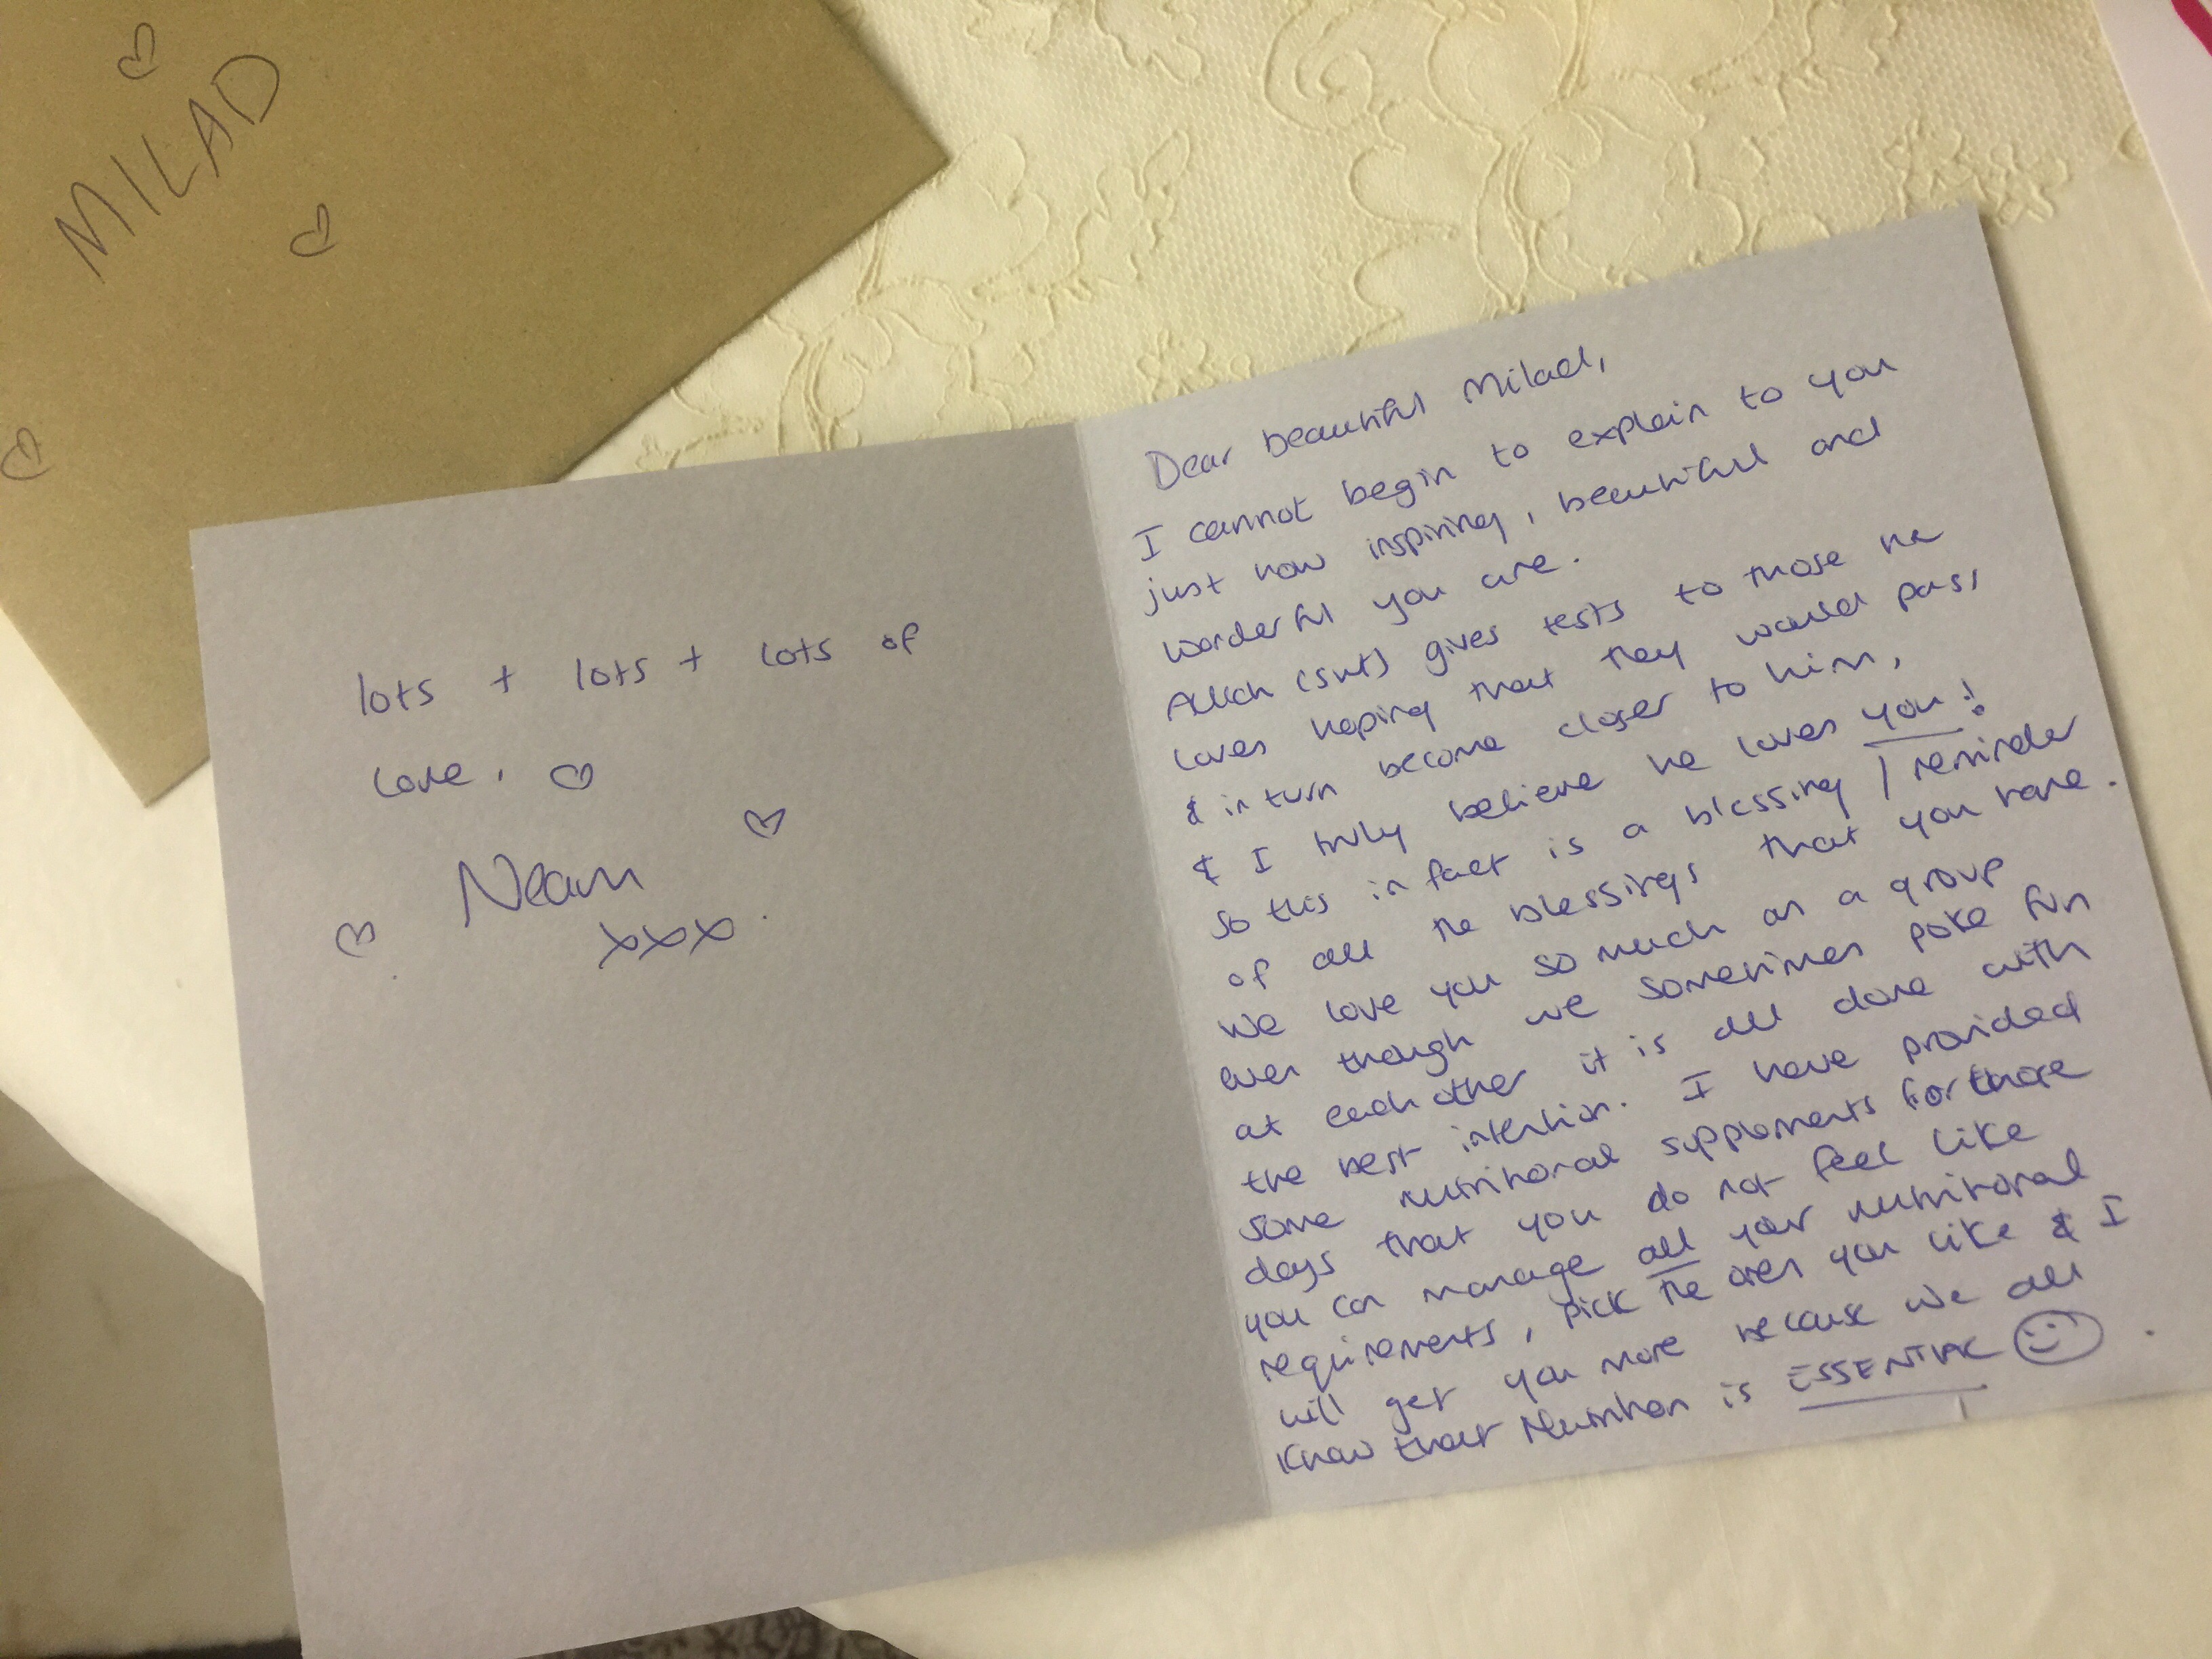 MILAD
Dear beautiful Milad,
I cannot begin to explain to you
just how inspiring, beautiful and
wonderful you are.
Allah (swt) gives tests to those he
loves hoping that they would pass,
& in turn become closer to him,
& I truly believe he loves you!
So this in fact is a blessing / reminder
of all the blessings that you have.
We love you so much as a group
even though we sometimes poke fun
at each other it is all done with
the best intention. I have provided
some nutritional supplements for those
days that you do not feel like
you can manage all your nutritional
requirements, pick the ones you like & I
will get you more because we all
know that Nutrition is ESSENTIAL
lots + lots + lots of
love.
xxx.